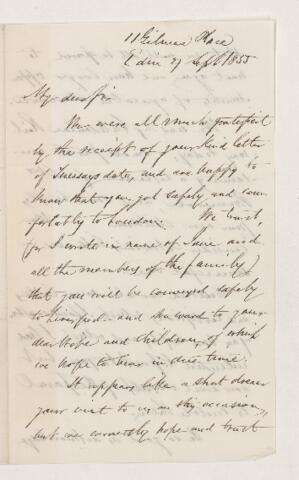 11 Gilmore Place
Edin 27 Sept 1855
My dear Sir,
We were all much gratified
by the receipt of your kind letter
of Tuesdays date, and are happy to
know that you got safely and com-
fortably to London. We trust,
(for I write in name of Jane and
all the members of the family)
that you will be conveyed safely
to Liverpool - and onward to your
dear wife and children, of which
we hope to hear in due time.
It appears like a short dream
your visit to us on this occasion,
but we earnestly hope and trust